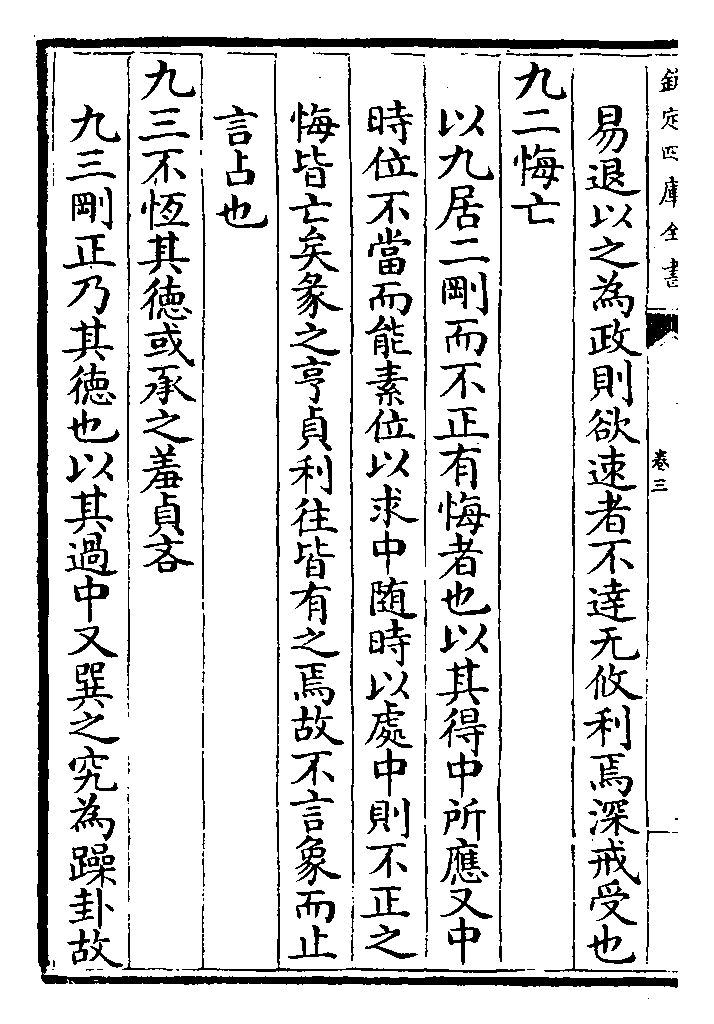 欽定四庫全書
卷三
易退以之為政則欲速者不達无攸利焉深戒受也
九二悔亡
以九居二剛而不正有悔者也以其得中所應又中
時位不當而能素位以求中随時以處中則不正之
悔皆亡矣彖之亨貞利往皆有之焉故不言象而止
言占也
九三不恆其徳或承之羞貞吝
九三剛正乃其徳也以其過中又巽之究為躁卦故